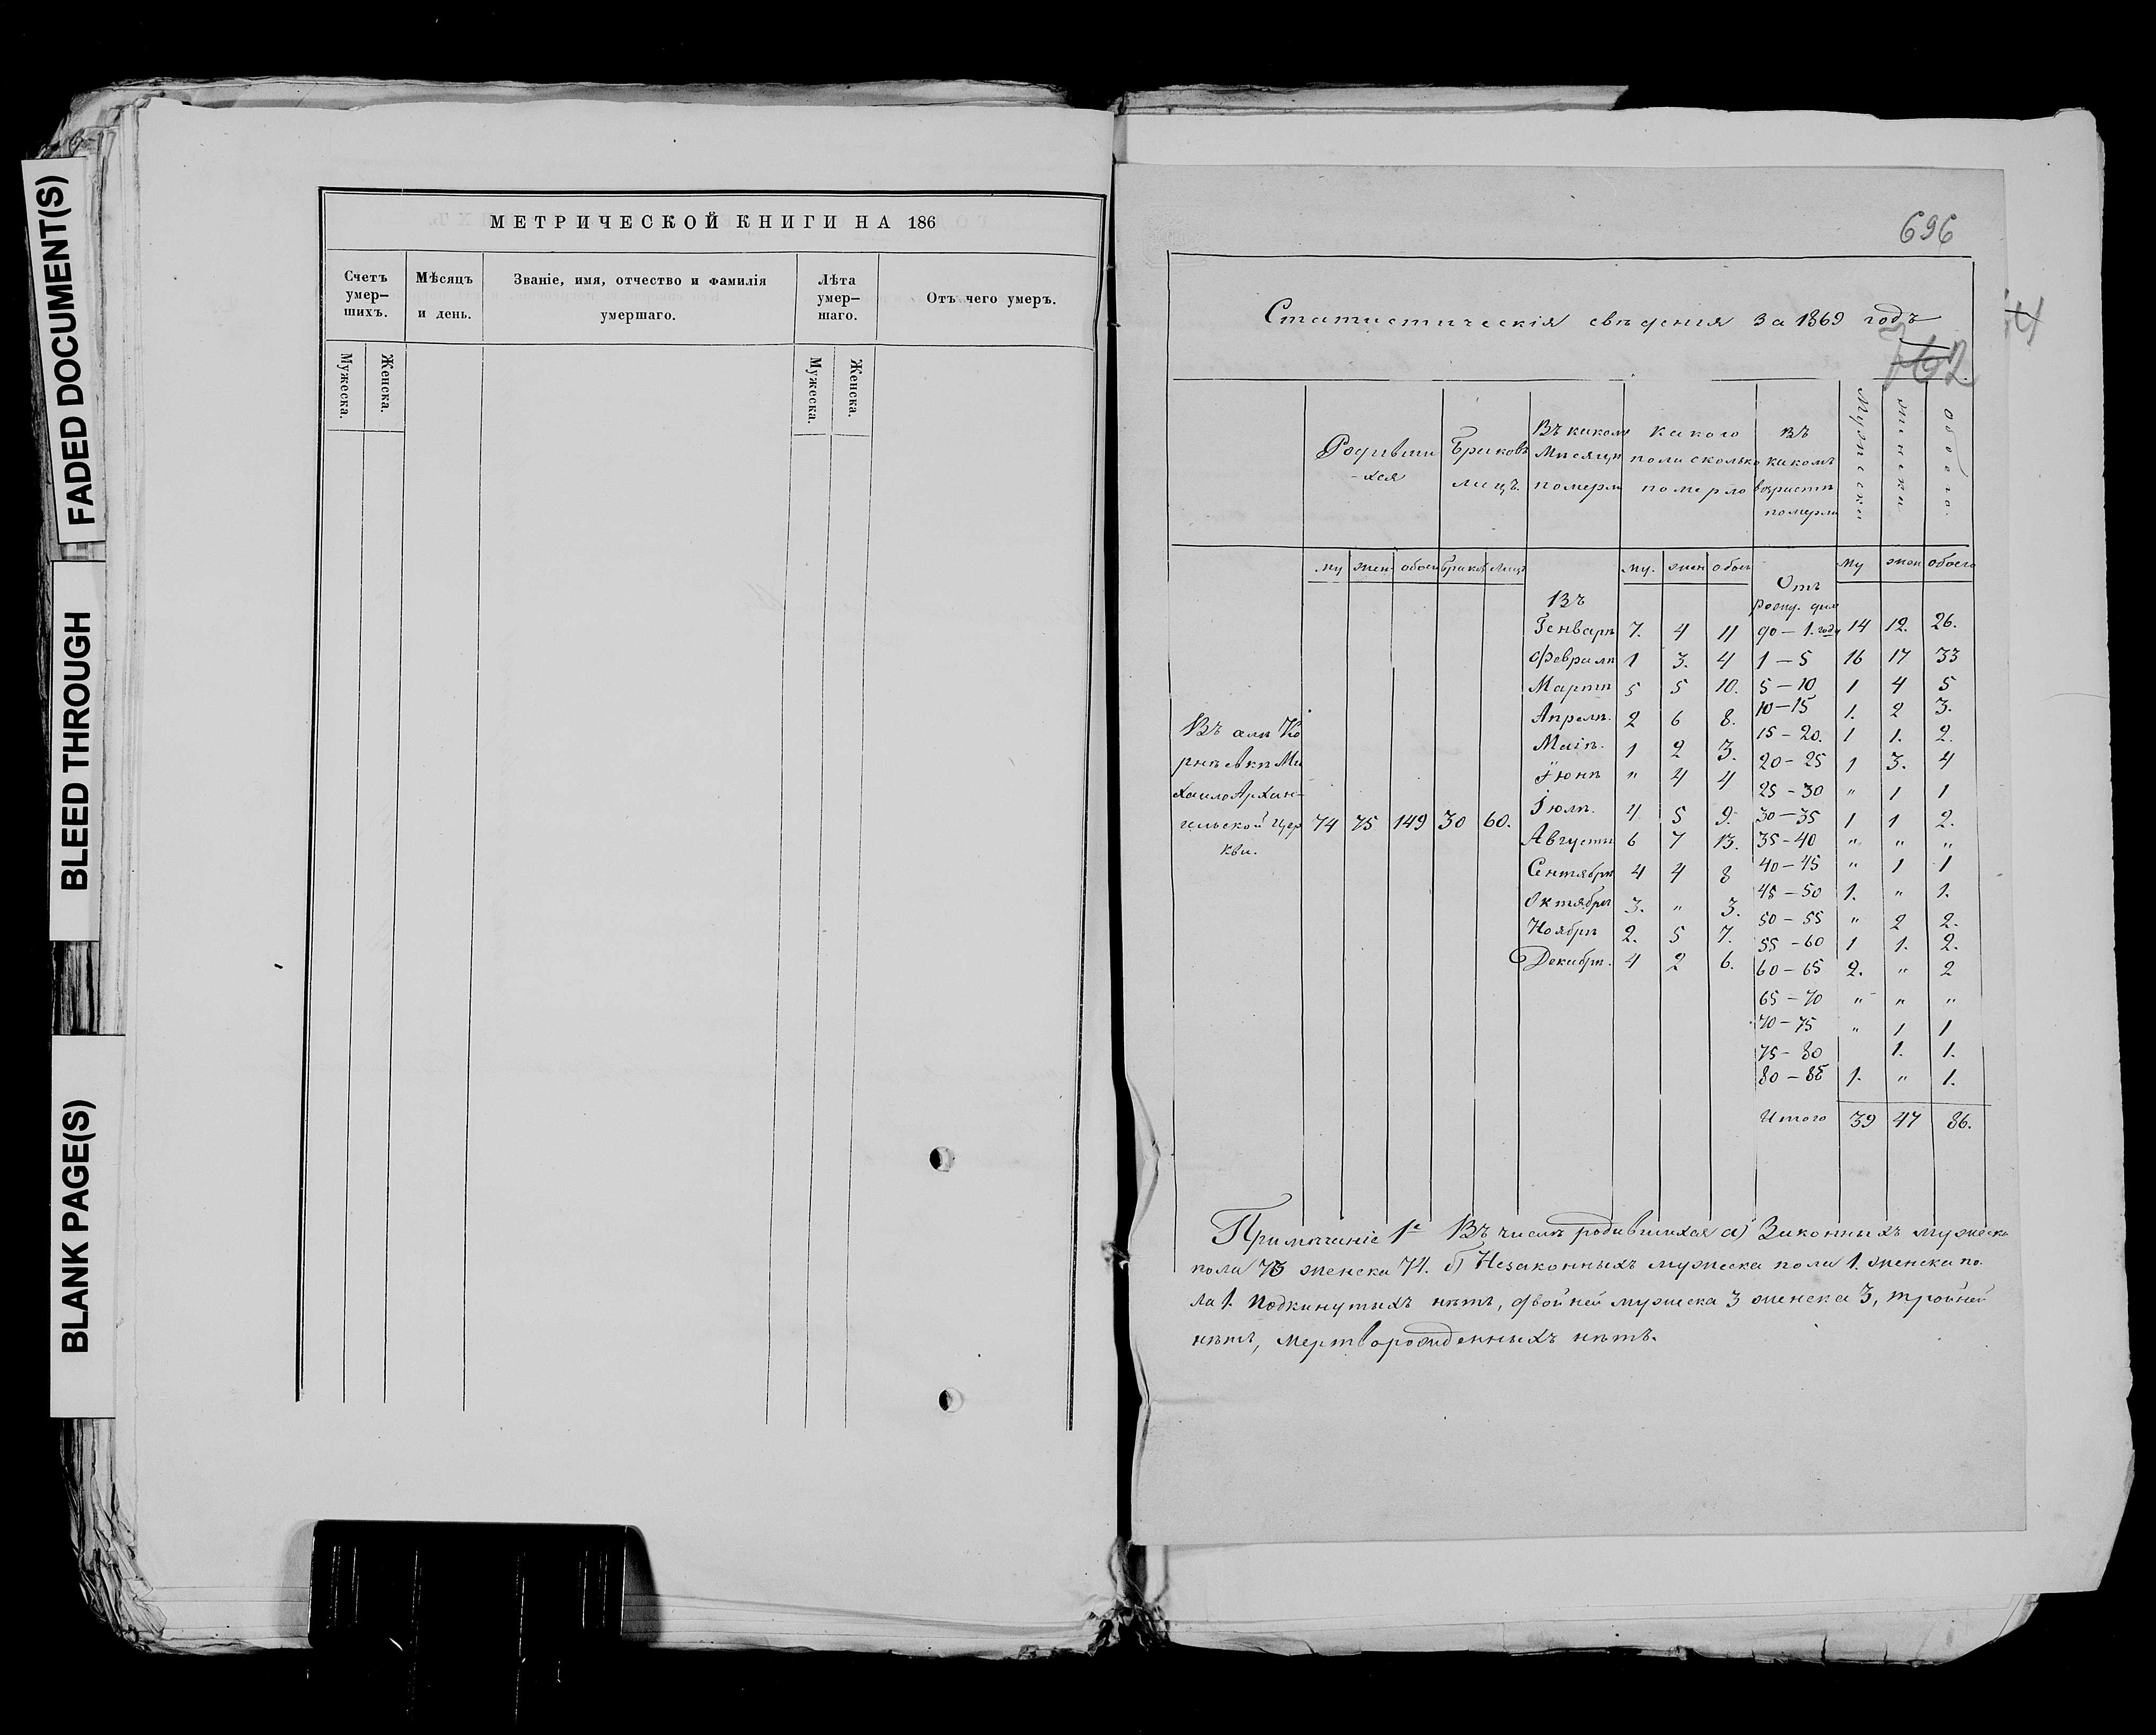 FADED DOCUMENT(S)
BLEED THROUGH
BLANK PAGE(S)
МЕТРИЧЕСКОЙ КНИГИ НА 186
Счетъ умер-шихъ.
Мѣсяцъ и день.
Званіе, имя, отчество и фамилія умершаго.
Лѣта умер-шаго.
Отъ чего умеръ.
Мужеска.
Женска.
Мужеска.
Женска.
696
Статистическія свѣденія за 1869 годъ
762
Родивши-хся
Браковъ лицъ.
Въ каком Мѣсяцѣ померли
какого пола сколько померло
въ какомъ возрастѣ померли
Мужеска
женска
обоего.
му жен обоег браков лицъ му. жен обоег му жен обоего
Въ селѣ Ко
рнѣевкѣ Ми
хаило Архан-
гельской Цер
кви.
74 75 149 30 60.
Въ
Генварѣ 7. 4 11
Февралѣ 1 3. 4
Мартѣ 5 5 10.
Апрелѣ. 2 6 8.
Маіѣ. 1 2 3.
Іюнѣ " 4 4
Іюлѣ. 4 5 9.
Августѣ 6 7 13.
Сентябрѣ 4 4 8
Октябрѣ 3. " 3.
Ноябрѣ 2. 5 7.
Декабрѣ. 4 2 6.
Отъ
рожд. дня
до — 1. году 14 12. 26.
1 — 5 16 17 33
5 — 10 1 4 5
10 — 15 1. 2 3.
15 — 20. 1 1. 2.
20 — 25 1 3. 4
25 — 30 " 1 1
30 — 35 1 1 2.
35 — 40 " " "
40 — 45 " 1 1
45 — 50 1. " 1.
50 — 55 " 2 2.
55 — 60 1 1. 2.
60 — 65 2. " 2
65 — 70 " " "
70 — 75 " 1 1
75 — 80 1. 1.
80 — 85 1. " 1.
Итого 39 47 86.
Примѣчаніе 1е Въ числѣ родившихся а) Законныхъ мужеска
пола 73 женска 74. б) Незаконныхъ мужеска пола 1. женска по-
ла 1. Подкинутыхъ нѣтъ, двойней мужеска 3 женска 3, тройней
нѣтъ, мертворожденныхъ нѣтъ.